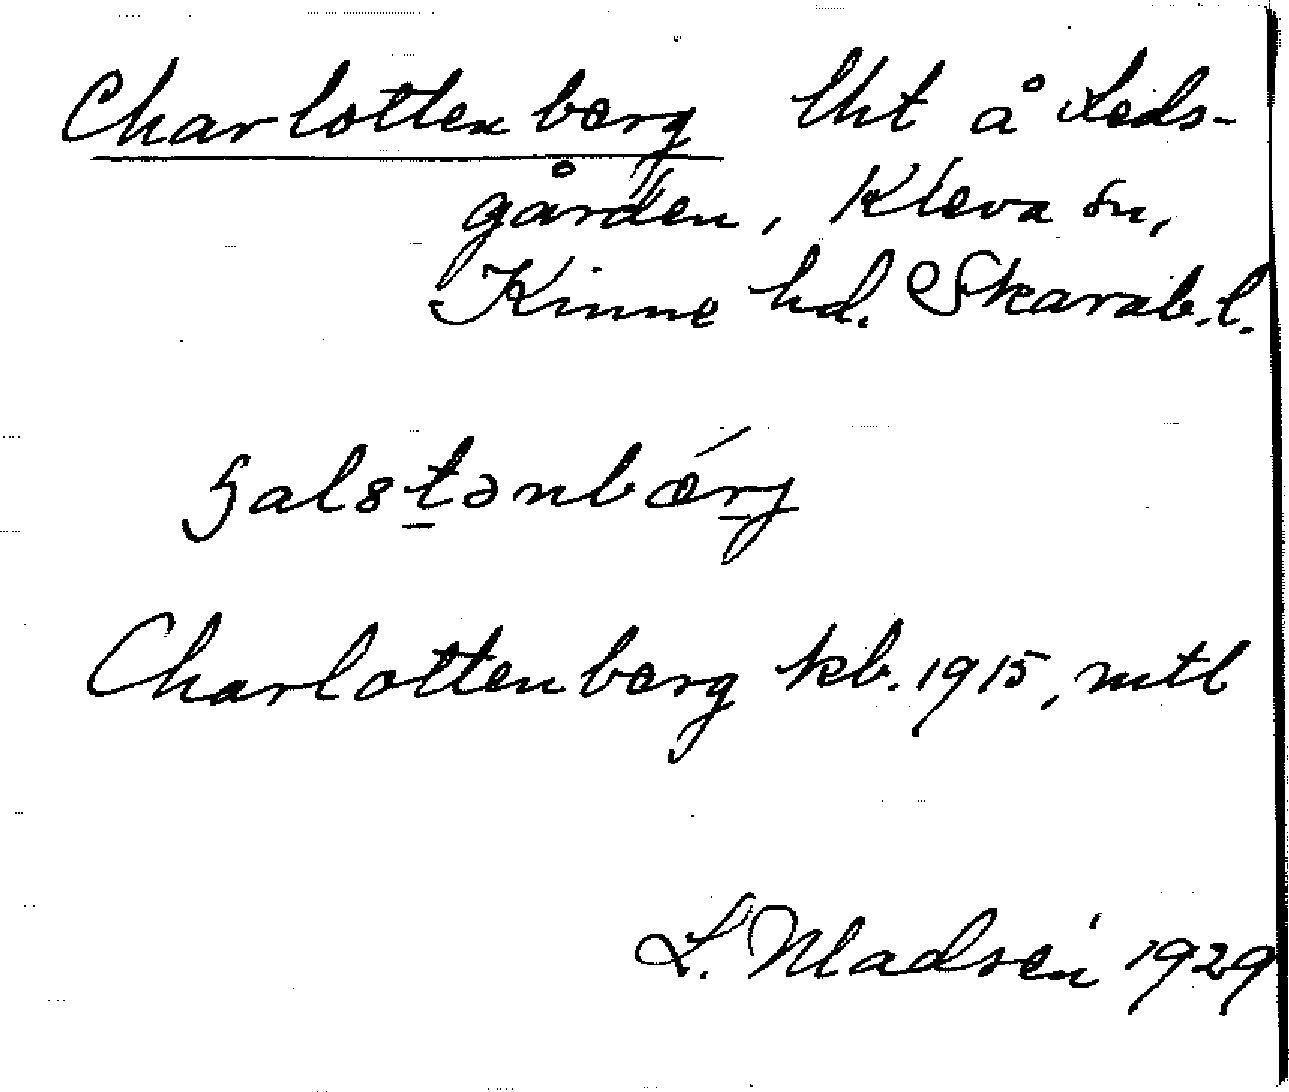 Charlottenberg lht å Leds-
gården, Kleva sn,
Kinne hd. Skarab. l.
ʃalstənbǽrj
Charlottenberg kb. 1915, mtl
L. Madsén 1929